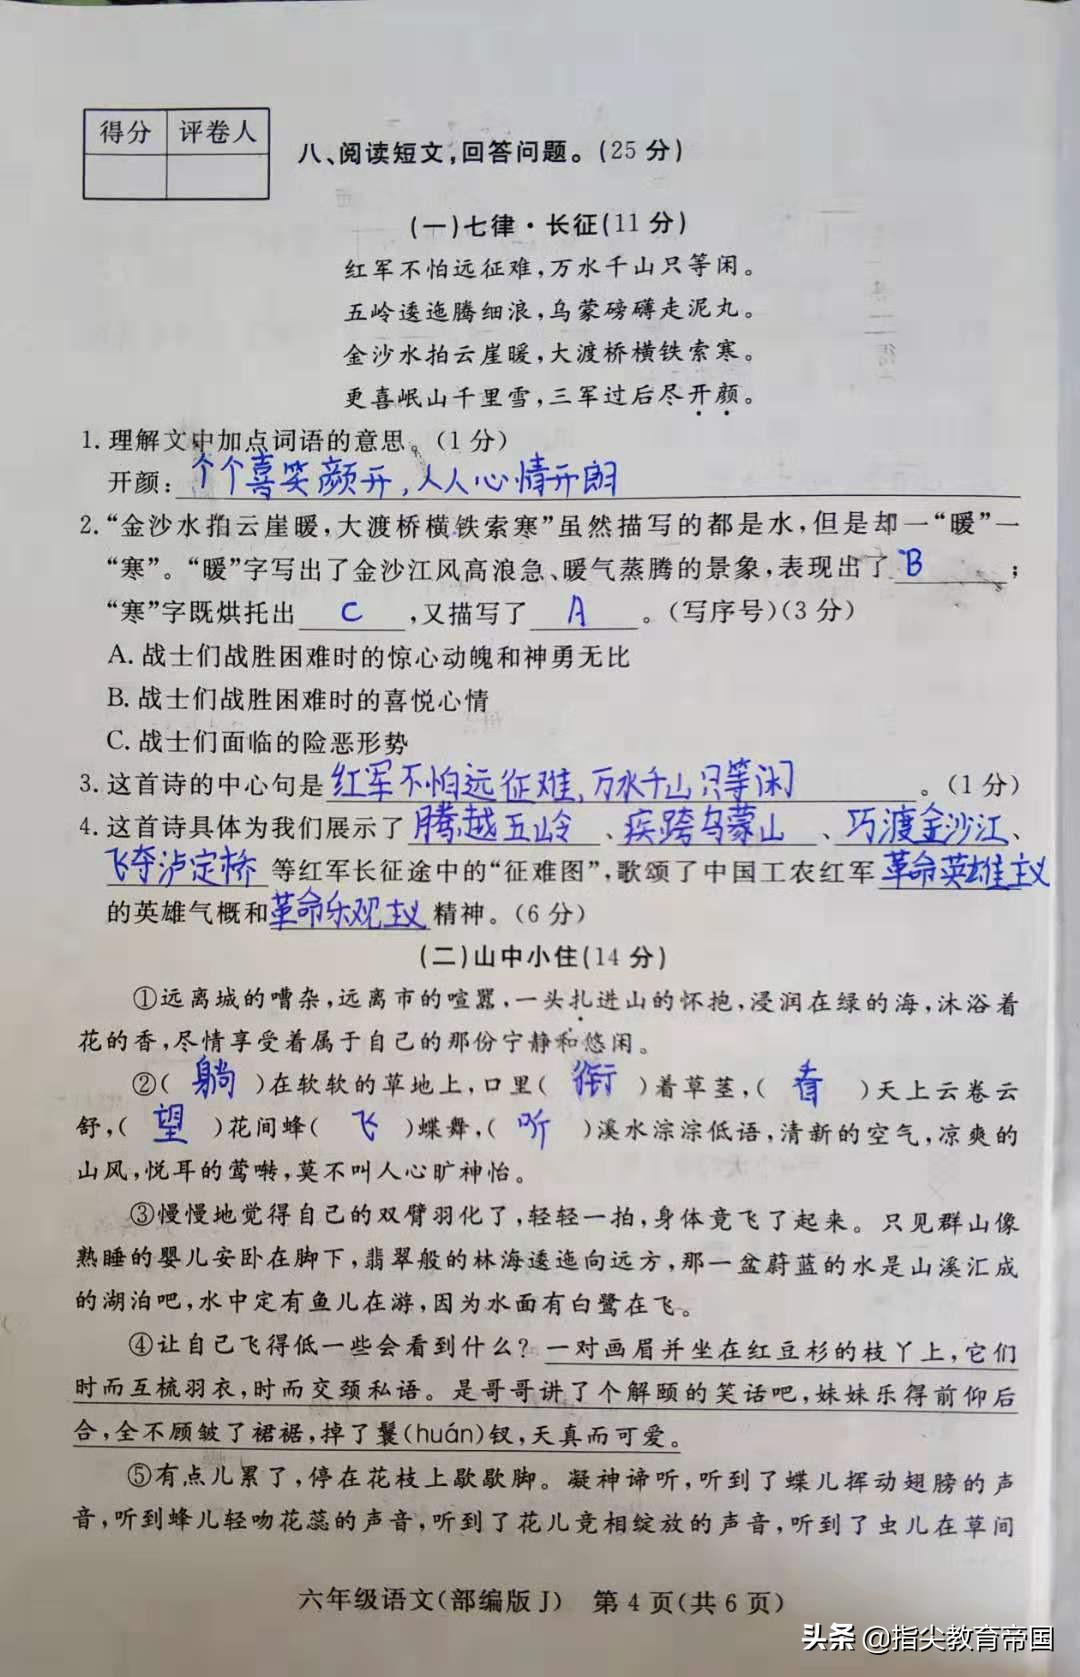 得分 评卷人
八、阅读短文,回答问题。(25 分)
(一)七律·长征(11 分)
红军不怕远征难,万水千山只等闲。
五岭逶迤腾细浪,乌蒙磅礴走泥丸。
金沙水拍云崖暖,大渡桥横铁索寒。
更喜岷山千里雪,三军过后尽开颜。
1. 理解文中加点词语的意思。(1 分)
开颜: 个个喜笑颜开,人人心情开朗
2. “金沙水拍云崖暖,大渡桥横铁索寒”虽然描写的都是水,但是却一“暖”一
“寒”。“暖”字写出了金沙江风高浪急、暖气蒸腾的景象,表现出了 B ;
“寒”字既烘托出 C ,又描写了 A 。(写序号)(3 分)
A. 战士们战胜困难时的惊心动魄和神勇无比
B. 战士们战胜困难时的喜悦心情
C. 战士们面临的险恶形势
3. 这首诗的中心句是 红军不怕远征难,万水千山只等闲 。(1 分)
4. 这首诗具体为我们展示了 腾越五岭 、 疾跨乌蒙山 、 巧渡金沙江 、
飞夺泸定桥 等红军长征途中的“征难图”,歌颂了中国工农红军 革命英雄主义
的英雄气概和 革命乐观主义 精神。(6 分)
(二)山中小住(14 分)
①远离城的嘈杂,远离市的喧嚣,一头扎进山的怀抱,浸润在绿的海,沐浴着
花的香,尽情享受着属于自己的那份宁静和悠闲。
②( 躺 )在软软的草地上,口里( 衔 )着草茎,( 看 )天上云卷云
舒,( 望 )花间蜂( 飞 )蝶舞,( 听 )溪水淙淙低语,清新的空气,凉爽的
山风,悦耳的莺啭,莫不叫人心旷神怡。
③慢慢地觉得自己的双臂羽化了,轻轻一拍,身体竟飞了起来。只见群山像
熟睡的婴儿安卧在脚下,翡翠般的林海逶迤向远方,那一盆蔚蓝的水是山溪汇成
的湖泊吧,水中定有鱼儿在游,因为水面有白鹭在飞。
④让自己飞得低一些会看到什么?一对画眉并坐在红豆杉的枝丫上,它们
时而互梳羽衣,时而交颈私语。是哥哥讲了个解颐的笑话吧,妹妹乐得前仰后
合,全不顾皱了裙裾,掉了鬟(huán)钗,天真而可爱。
⑤有点儿累了,停在花枝上歇歇脚。凝神谛听,听到了蝶儿挥动翅膀的声
音,听到蜂儿轻吻花蕊的声音,听到了花儿竞相绽放的声音,听到了虫儿在草间
六年级语文(部编版 J) 第 4 页(共 6 页)
头条 @指尖教育帝国